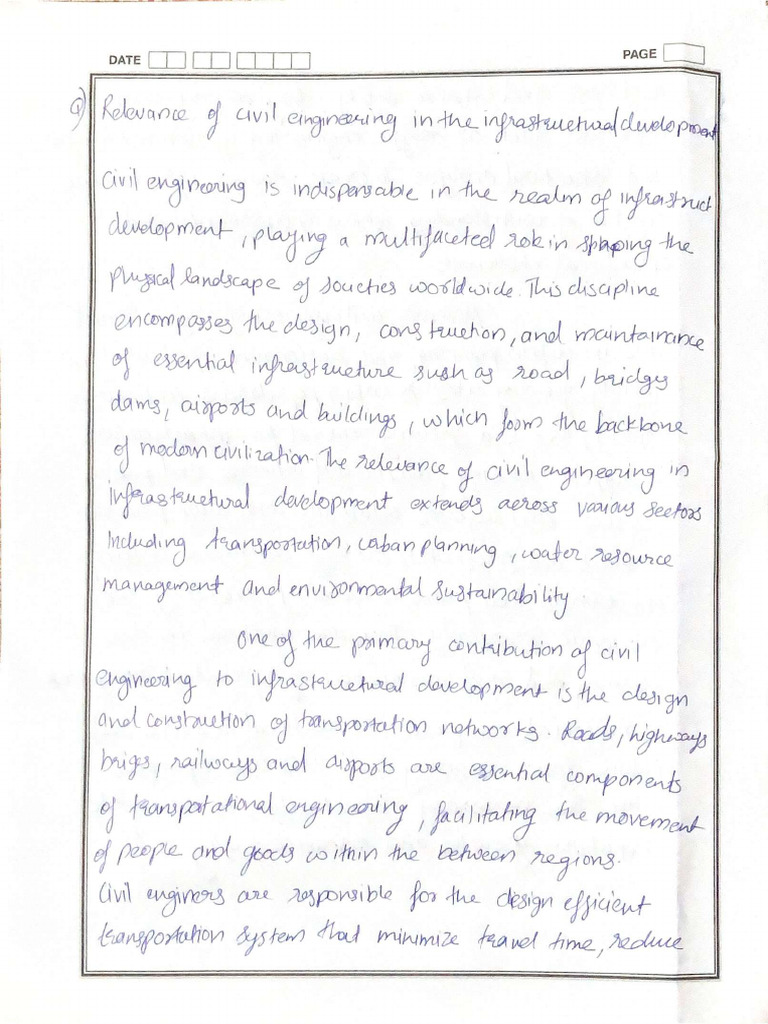 DATE
PAGE
Q) Relevance of civil engineering in the infrastructural development
Civil engineering is indispensable in the realm of infrastruct
development, playing a multifaceted role in shaping the
physical landscape of societies worldwide. This discipline
encompasses the design, construction, and maintainance
of essential infrastructure such as road, bridges
dams, airports and buildings, which form the backbone
of modern civilization. The relevance of civil engineering in
infrastructural development extends across various sectors
Including transportation, urban planning, water resource
management and environmental sustainability.
One of the primary contribution of civil
engineering to infrastructural development is the design
and construction of transportation networks. Roads, highways
briges, railways and airports are essential components
of transportational engineering, facilitating the movement
of people and goods within the between regions.
Civil engineers are responsible for the design efficient
transportation system that minimize travel time, reduce